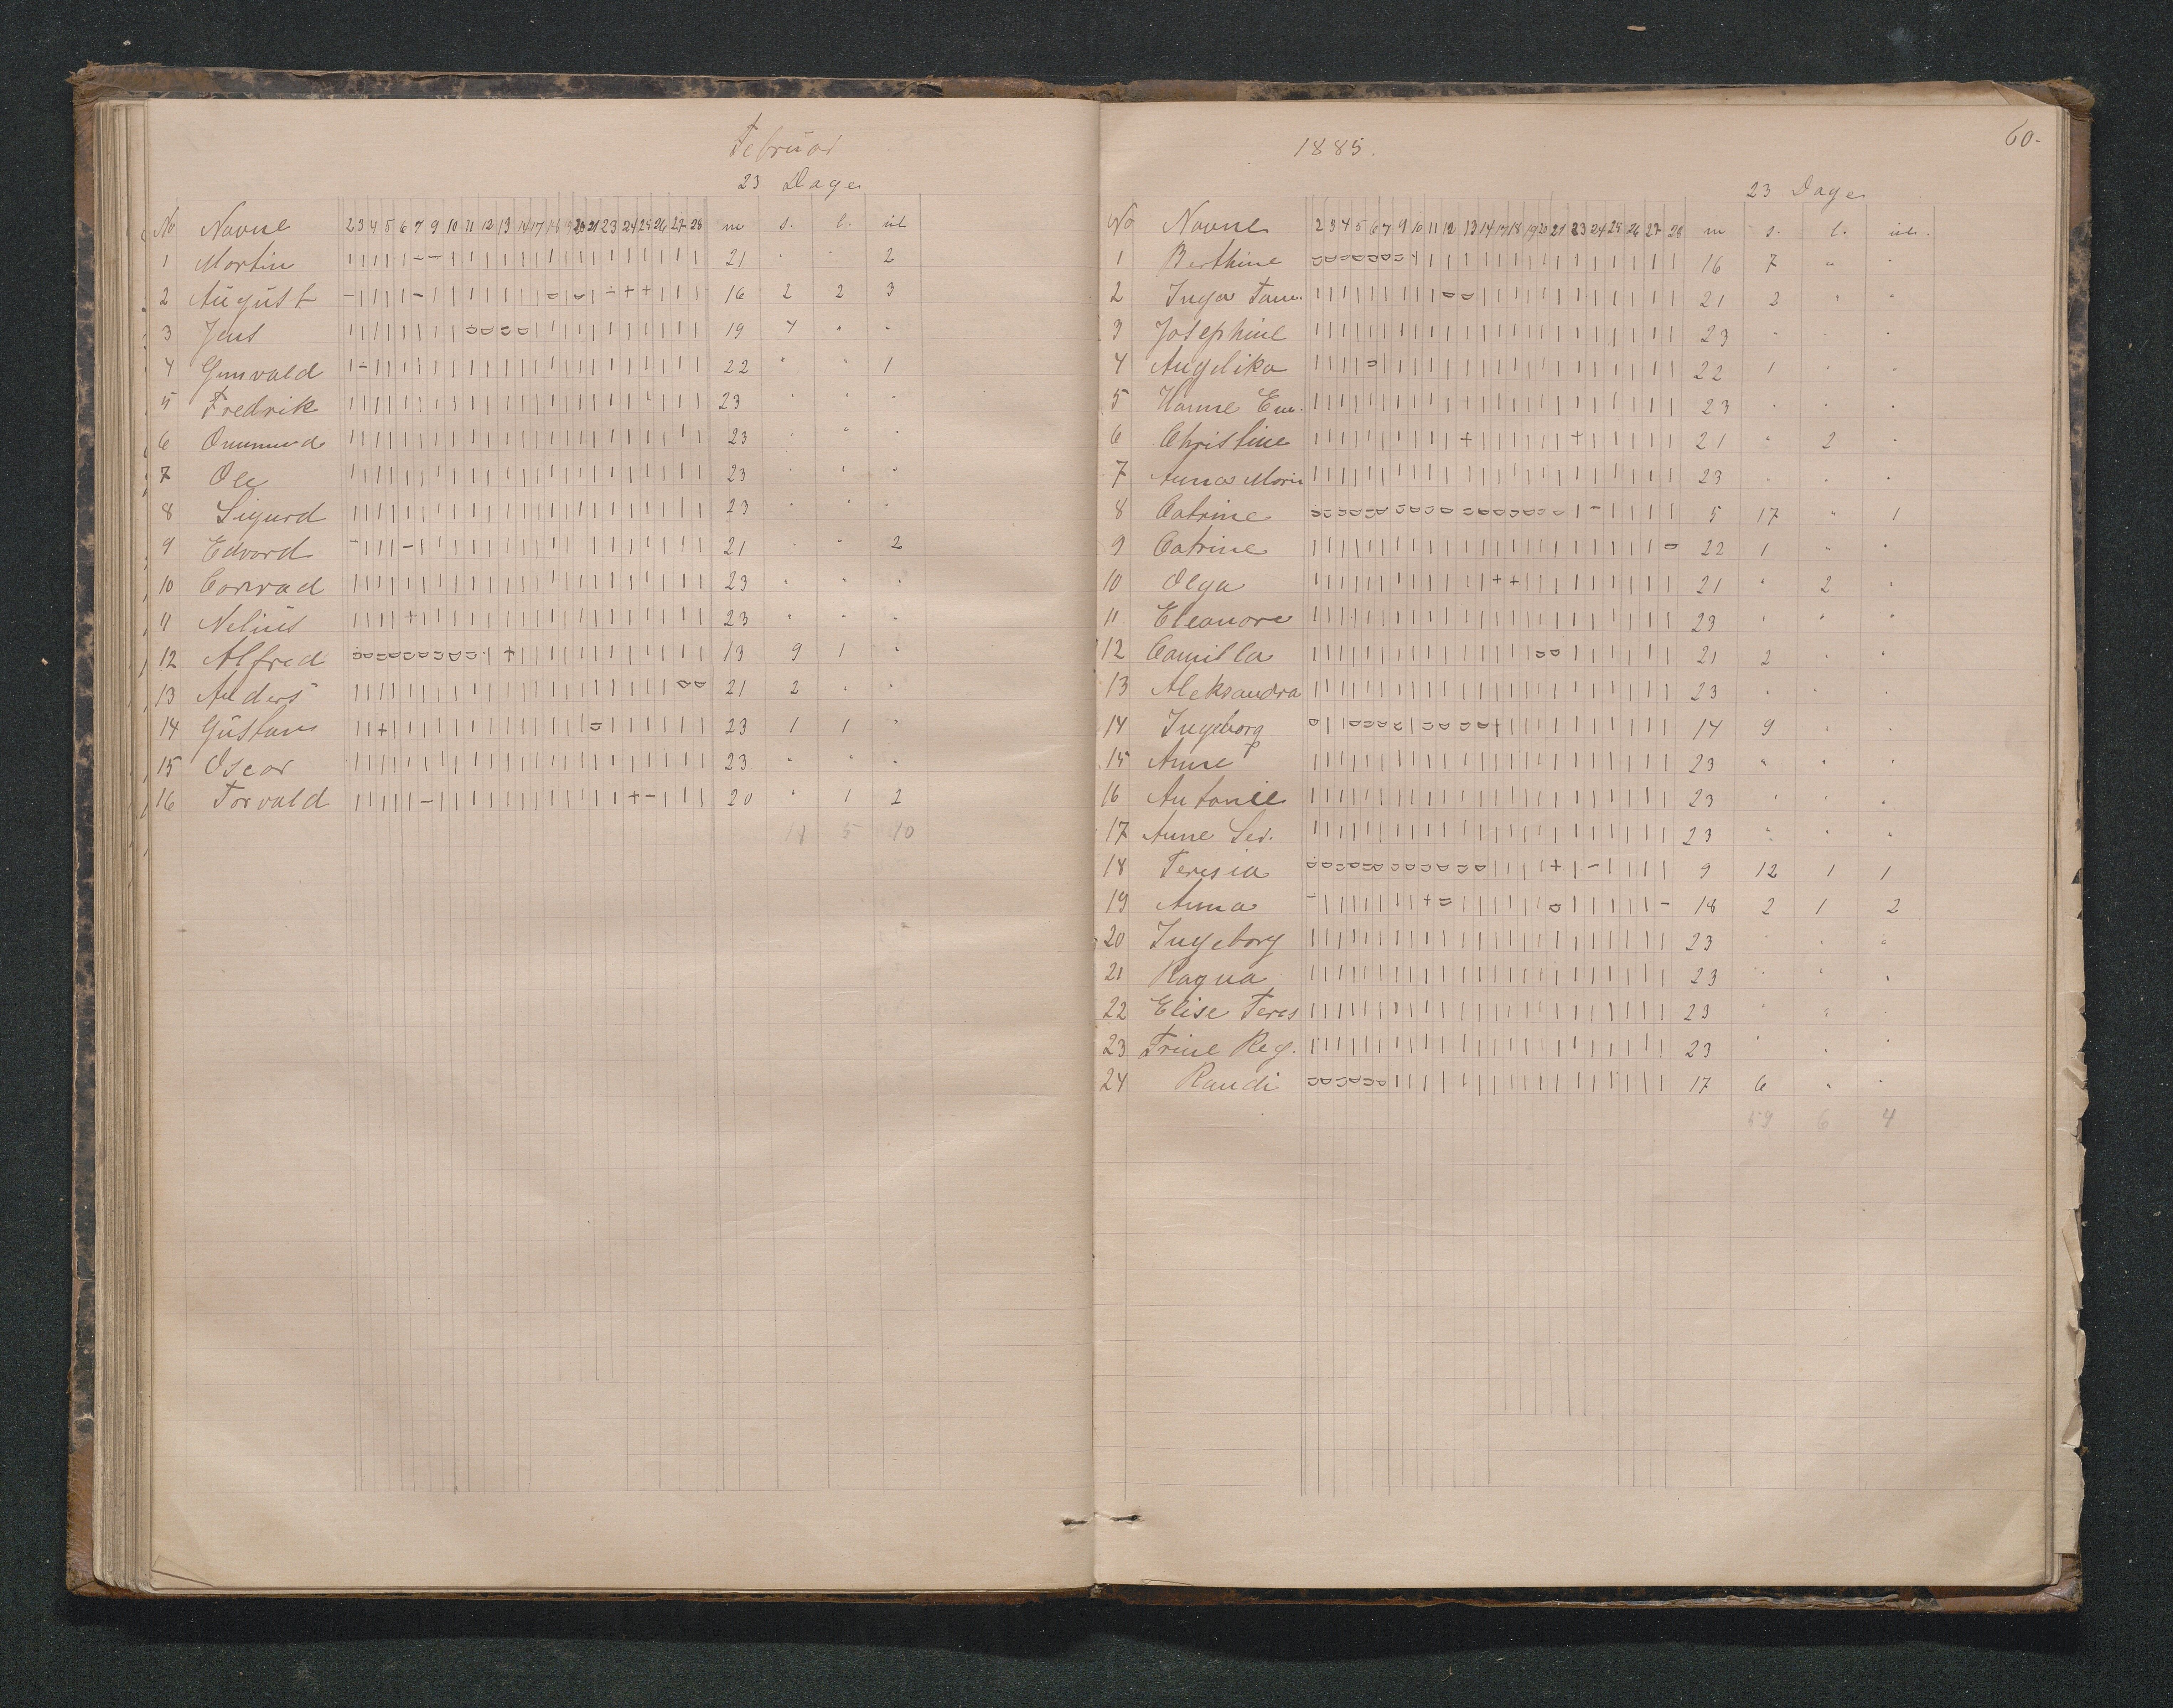 Februar
23 Dage
No Navne 2 3 4 5 6 7 9 10 11 12 13 14 17 18 19 20 21 23 24 25 26 27 28 m s. l. ul
1 Martin 21 " " 2
2 August 16 2 2 3
3 Jens 19 4 " "
4 Gunvald 22 " " 1
5 Fredrik 23 " " "
6 Ommund 23 " " "
7 Ole 23 " " "
8 Sigurd 23 " " "
9 Edvard 21 " " 2
10 Conrad 23 " " "
11 Nelius 23 " " "
12 Alfred 13 9 1 "
13 Anders 21 2 " "
14 Gustav 23 1 1 "
15 Oscar 23 " " "
16 Torvald 20 " 1 2
5 10
1885.
60-
23 Dage
No Navne 2 3 4 5 6 7 9 10 11 12 13 14 17 18 19 20 21 23 24 25 26 27 28 m s. l. ul.
1 Berthine 16 7 " "
2 Inga Tom. 21 2 " "
3 Josephine 23 " " "
4 Angelika 22 1 " "
5 Hanne Em. 23 " " "
6 Christine 21 " 2 "
7 Anna Marie 23 " " "
8 Catrine 5 17 " 1
9 Catrine 22 1 " "
10 Olga 21 " 2 "
11 Eleanore 23 " " "
12 Camilla 21 2 " "
13 Aleksandra 23 " " "
14 Ingeborg 14 9 " "
15 Anne P 23 " " "
16 Antonie 23 " " "
17 Anne Ser. 23 " " "
18 Teresia 9 12 1 1
19 Anna 18 2 1 2
20 Ingeborg 23 " " "
21 Ragna 23 " " "
22 Elise Teres 23 " " "
23 Trine Reg. 23 " " "
24 Randi 17 6 " "
59 6 4